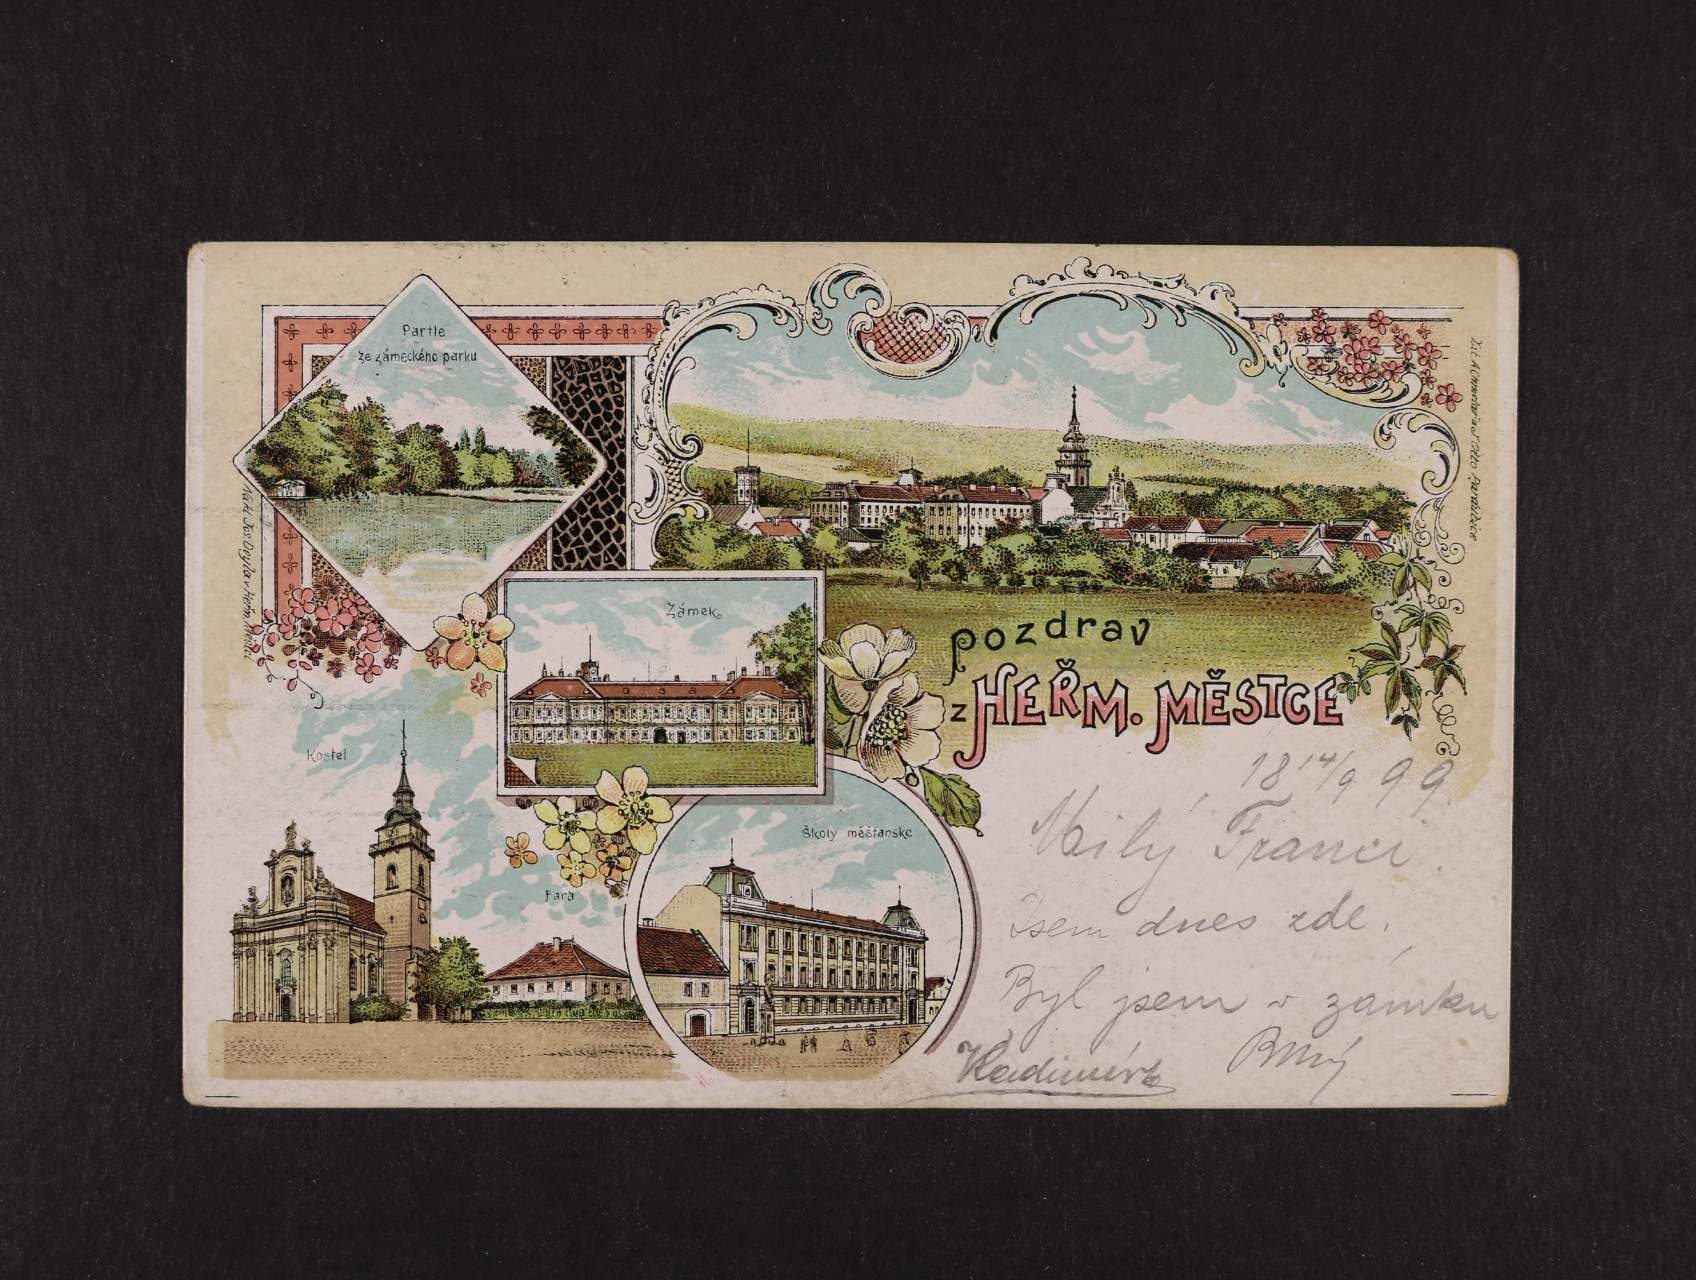 Partie
ze zámeckého parku
Zámek.
pozdrav
z HEŘM. MĚSTCE
Kostel
Fara
Školy měšťanské
18 14/9 99
Milý Franci
Jsem dnes zde.
Byl jsem v zámku
Vladimír
Nákl. Jos. Deyla v Heřm. Městci
Lit. A. Chmelař a J. Otto Pardubice